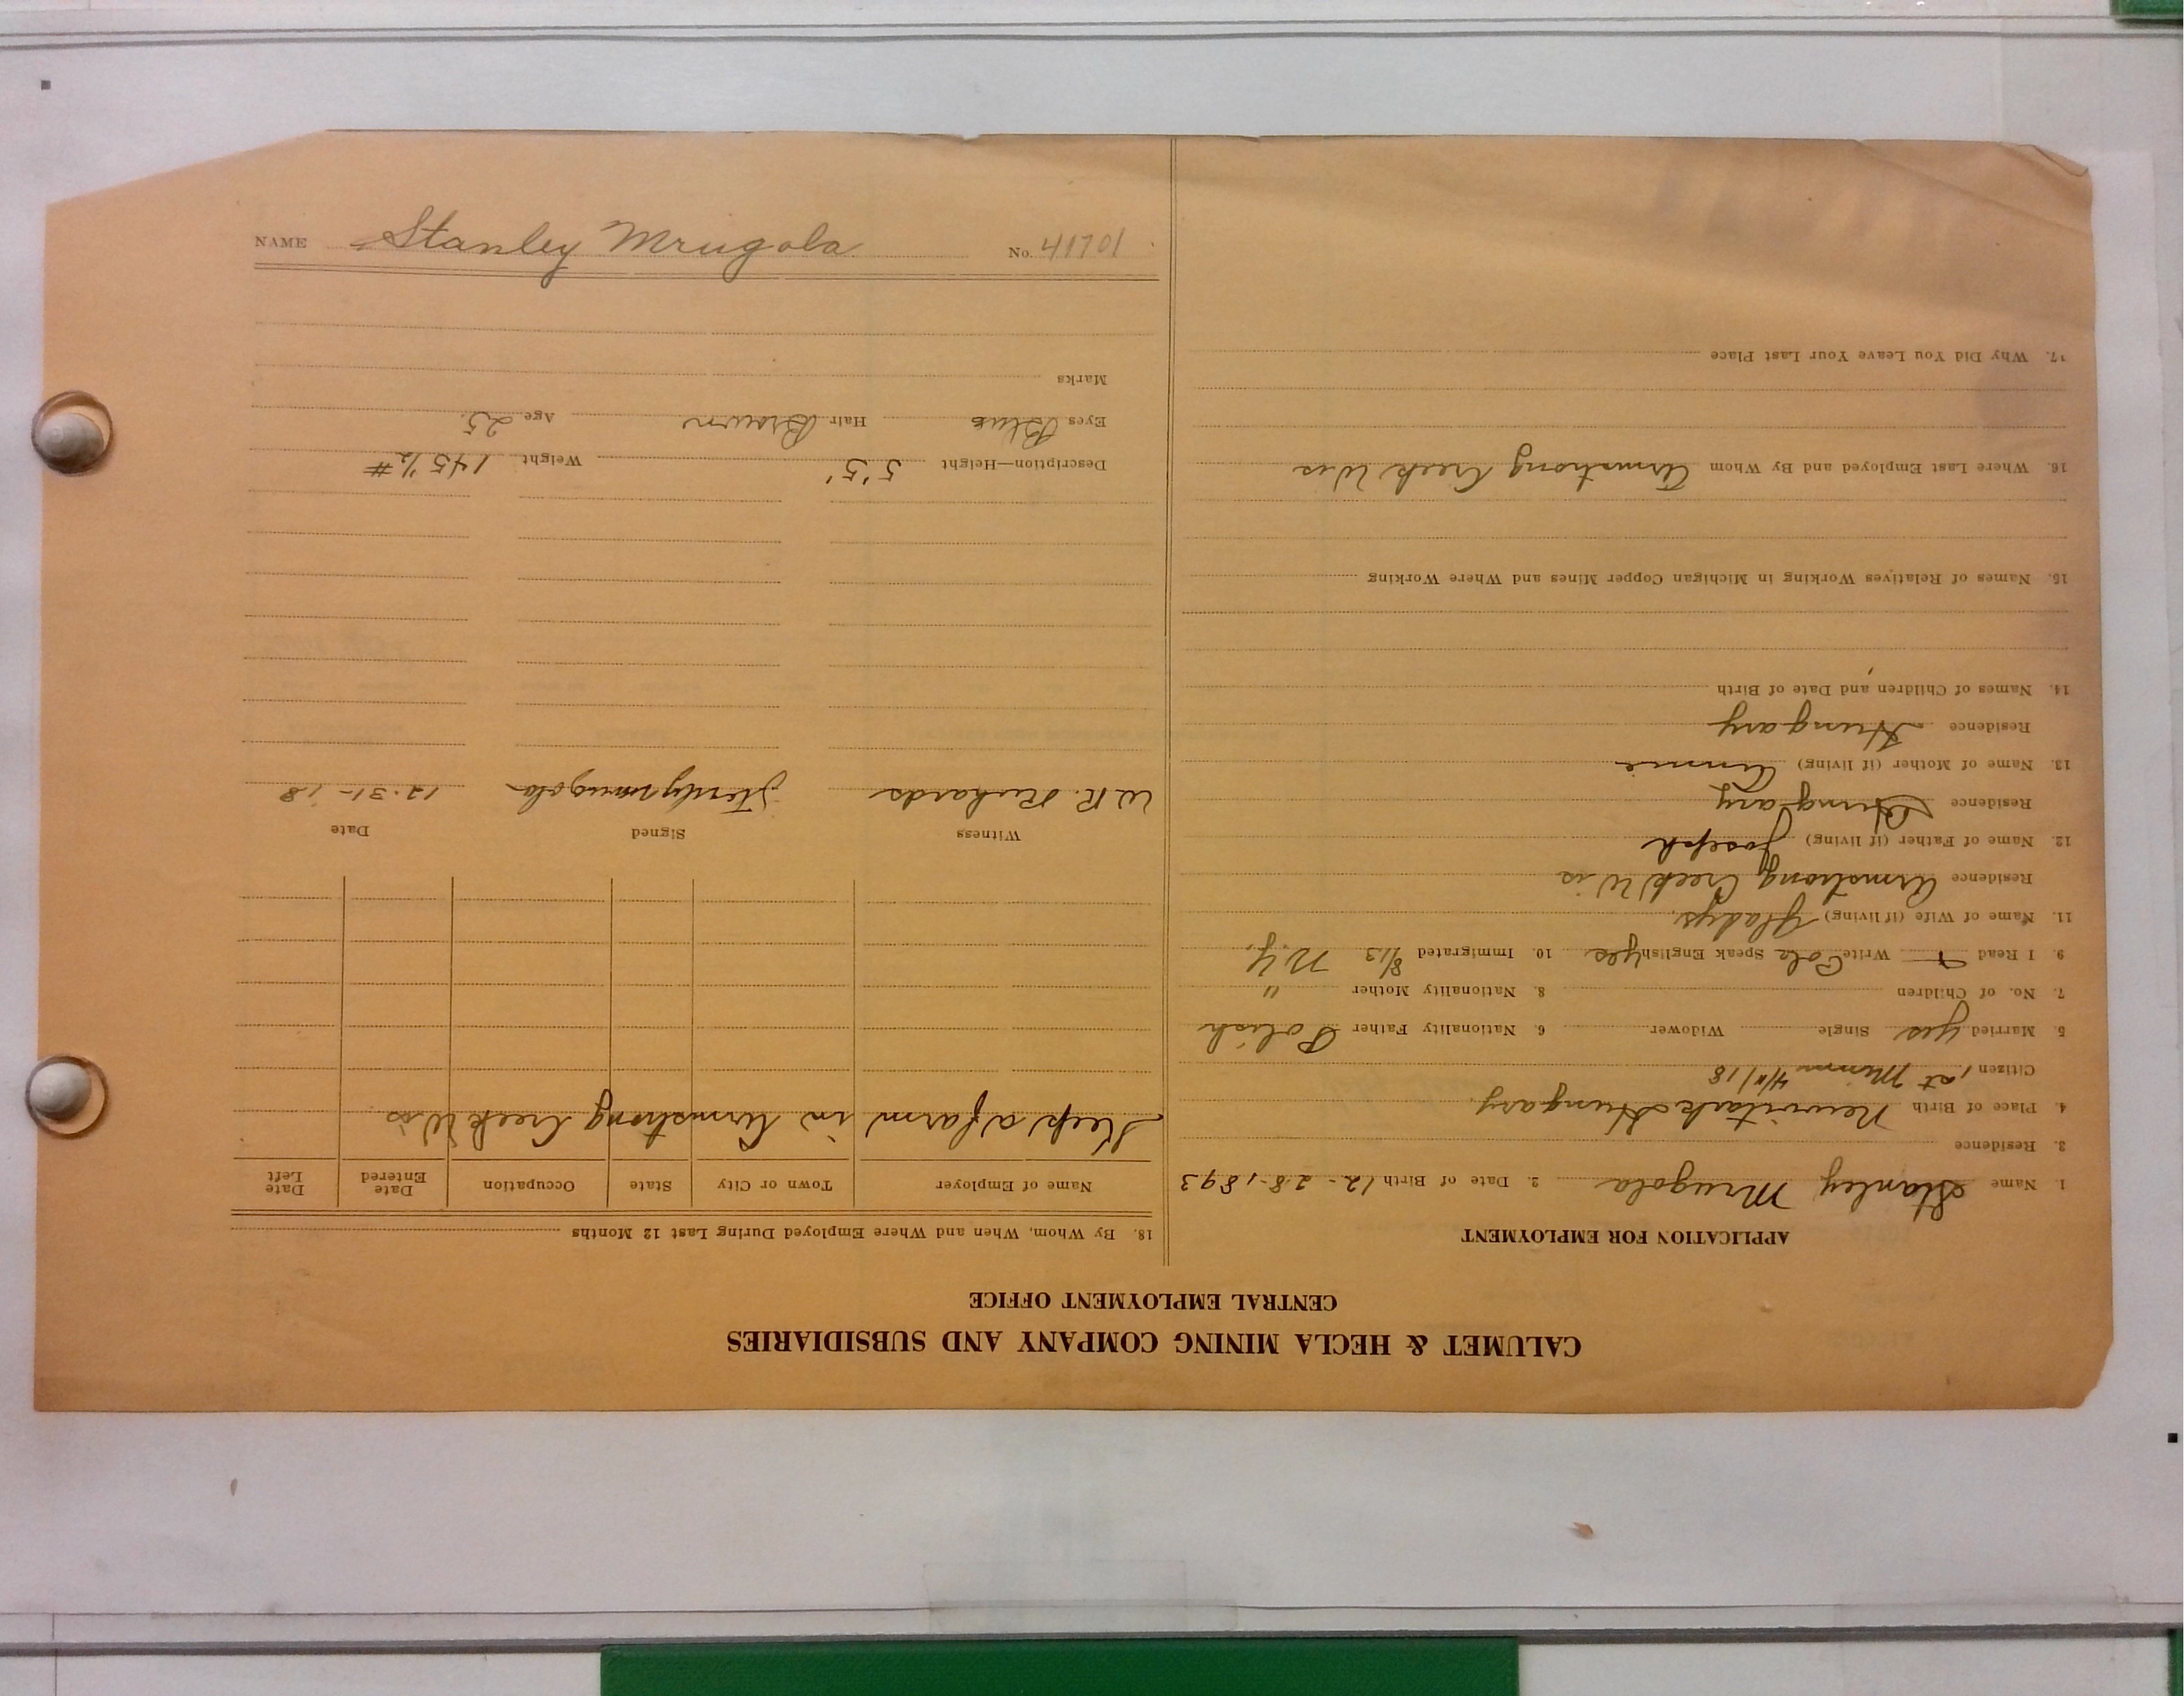 NAME Stanley Mrugola No. 41701
CALUMET & HECLA MINING COMPANY AND SUBSIDIARIES
CENTRAL EMPLOYMENT OFFICE
APPLICATION FOR EMPLOYMENT
1. Name Stanley Mrugola 2. Date of Birth 12-28-1893
3. Residence
4. Place of Birth Hungary
Citizen 1 at 18
5. Married yes Single Widower 6. Nationality Father Polish
7. No. of Children 8. Nationality Mother "
9. I Read Write Pola Speak English yes 10. Immigrated 8/13 N.Y.
11. Name of Wife (if living) Gladys
Residence Armstrong Creek Wis
12. Name of Father (if living) Joseph
Residence Hungary
13. Name of Mother (if living) Annie
Residence Hungary
14. Names of Children and Date of Birth
15. Names of Relatives Working in Michigan Copper Mines and Where Working
16. Where Last Employed and By Whom Armstrong Creek Wis
17. Why Did You Leave Your Last Place
18. By Whom, When and Where Employed During Last 12 Months
Name of Employer Town or City State Occupation Date Entered Date Left
Keep a farm in Armstrong Creek Wis
Witness Signed Date
W.R. Richards mrugola 12-31-18
Description—Height 5'5' Weight 145 1/2 #
Eyes Blue Hair Brown Age 25.
Marks